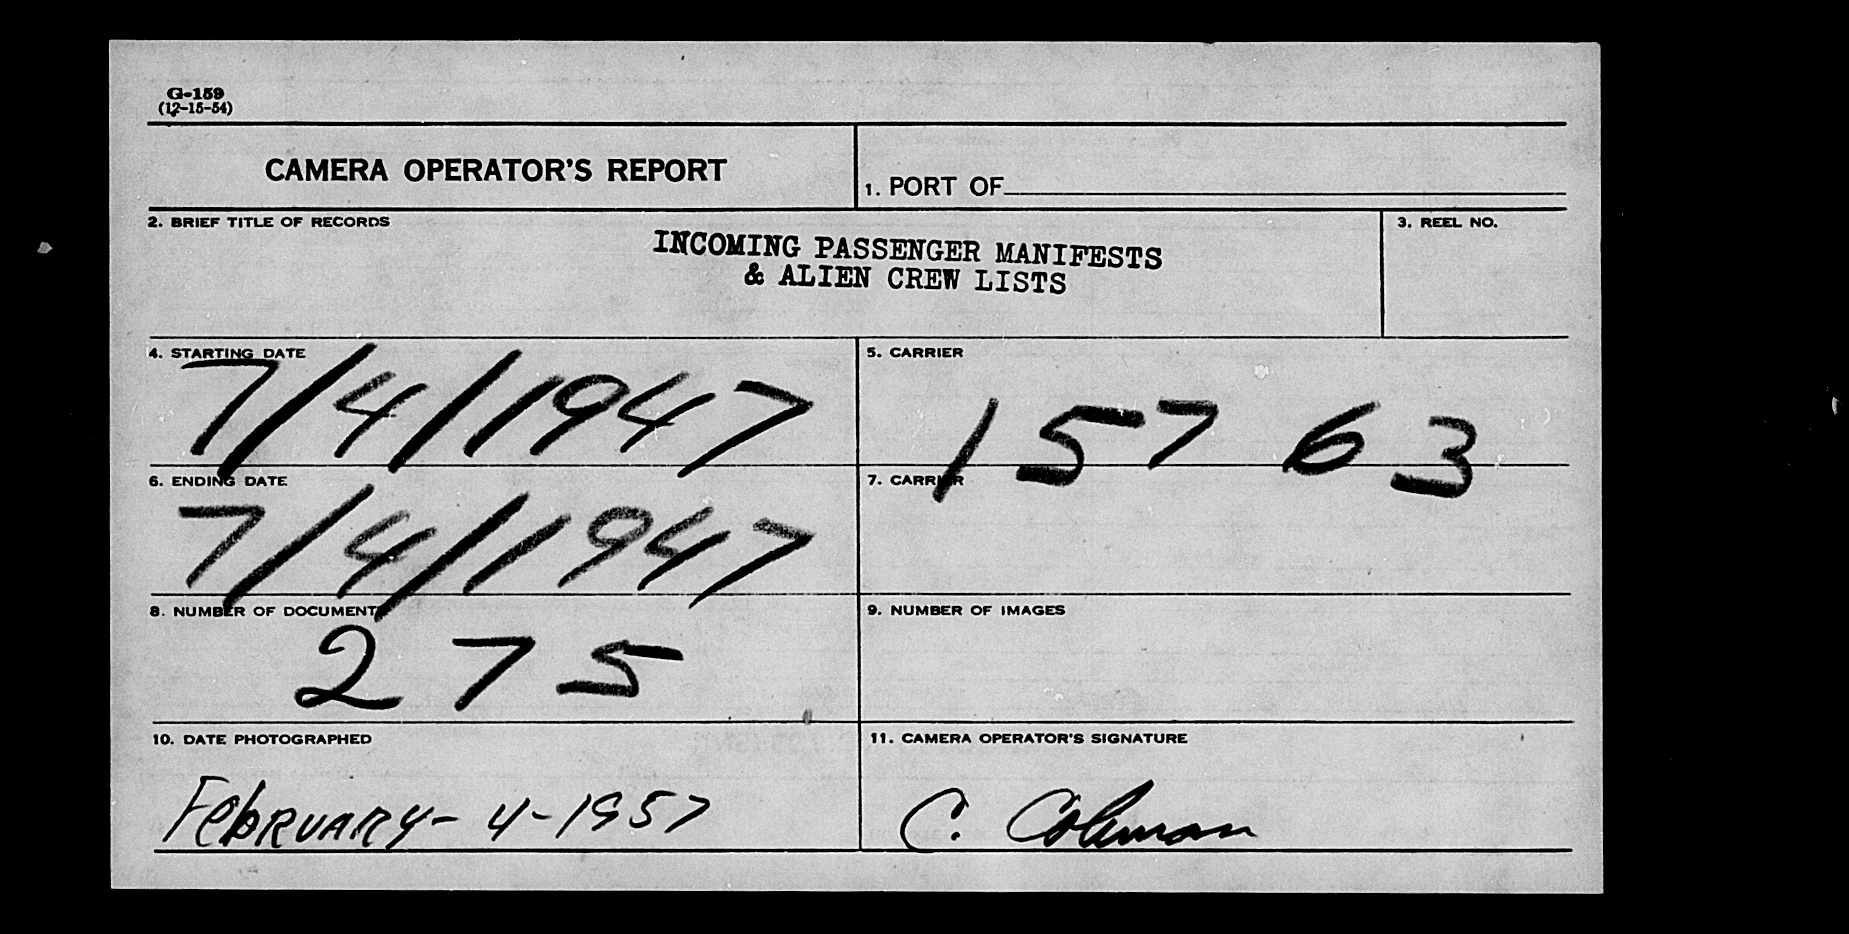 G-159
(12-15-54)
CAMERA OPERATOR'S REPORT
1. PORT OF
2. BRIEF TITLE OF RECORDS
INCOMING PASSENGER MANIFESTS
& ALIEN CREW LISTS
3. REEL NO.
4. STARTING DATE
7/4/1947
5. CARRIER
15763
6. ENDING DATE
7/4/1947
7. CARRIER
8. NUMBER OF DOCUMENTS
275
9. NUMBER OF IMAGES
10. DATE PHOTOGRAPHED
FebRUARY- 4-1957
11. CAMERA OPERATOR'S SIGNATURE
C. Coleman